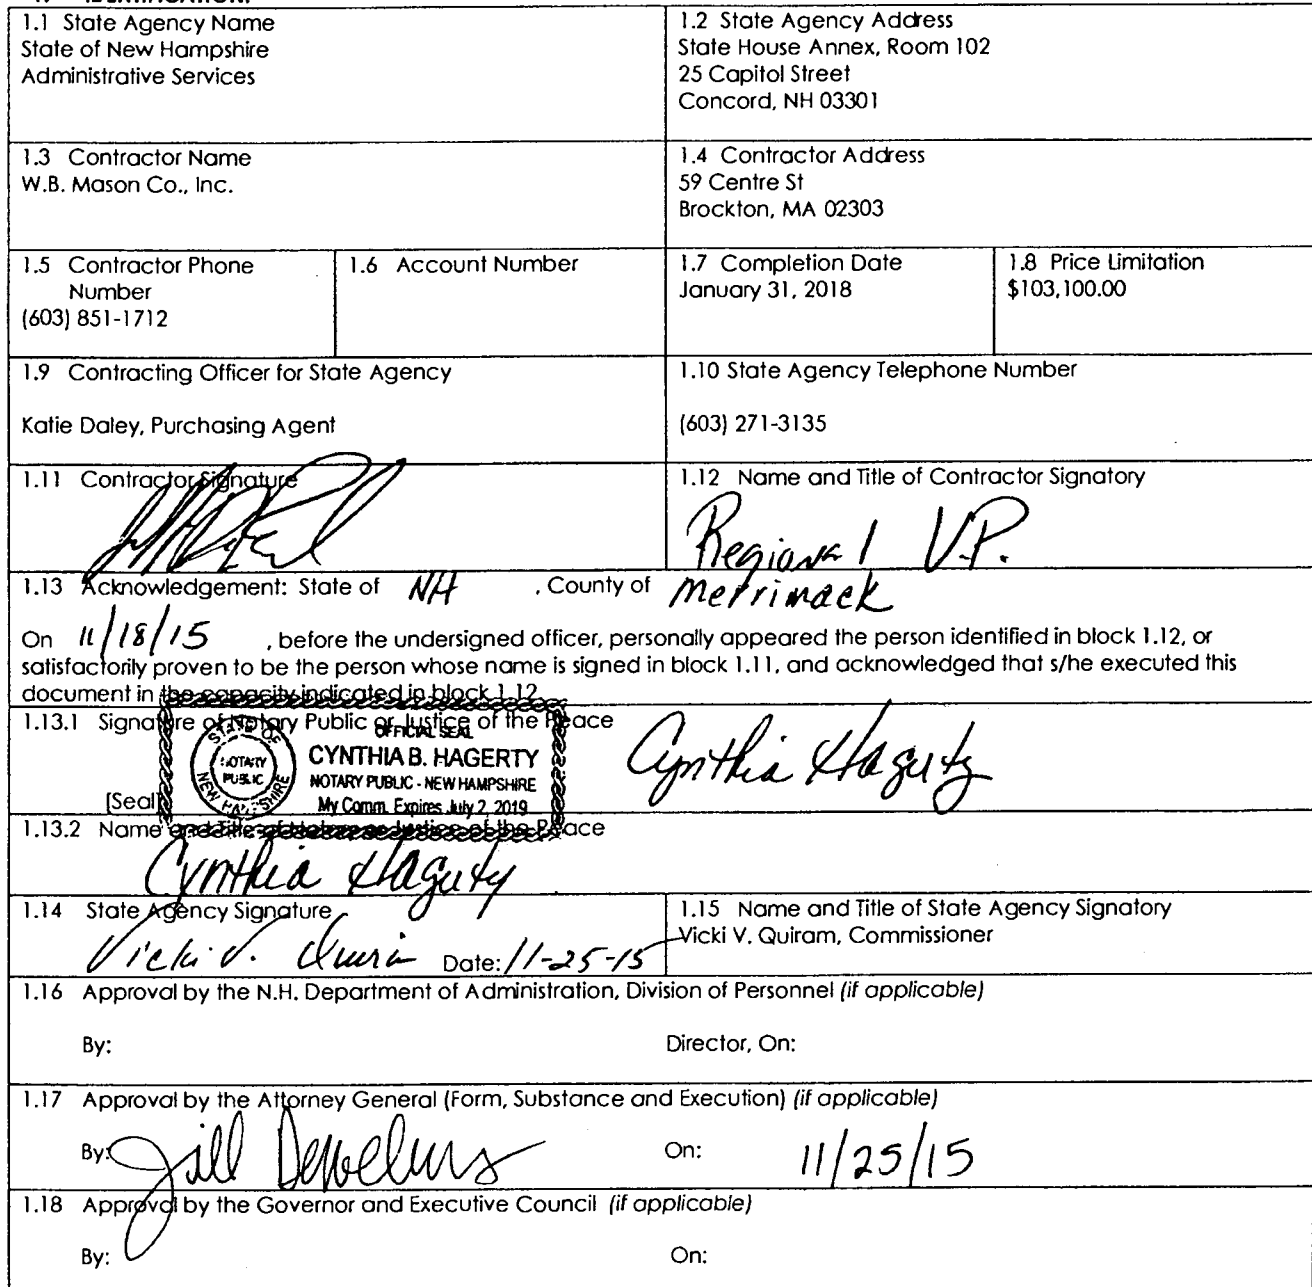 1.1 State Agency Name
State of New Hampshire
Administrative Services
1.2 State Agency Address
State House Annex, Room 102
25 Capitol Street
Concord, NH 03301
1.3 Contractor Name
W.B. Mason Co., Inc.
1.4 Contractor Address
59 Centre St
Brockton, MA 02303
1.5 Contractor Phone
Number
(603) 851-1712
1.6 Account Number
1.7 Completion Date
January 31, 2018
1.8 Price Limitation
$103,100.00
1.9 Contracting Officer for State Agency
Katie Daley, Purchasing Agent
1.10 State Agency Telephone Number
(603) 271-3135
1.11 Contractor Signature
1.12 Name and Title of Contractor Signatory
Regional V.P.
1.13 Acknowledgement: State of NH , County of Merrimack
On 11/18/15 , before the undersigned officer, personally appeared the person identified in block 1.12, or
satisfactorily proven to be the person whose name is signed in block 1.11, and acknowledged that s/he executed this
document in the capacity indicated in block 1.12
1.13.1 Signature of Notary Public or Justice of the Peace
OFFICIAL SEAL
STATE OF NEW HAMPSHIRE
NOTARY
PUBLIC
CYNTHIA B. HAGERTY
NOTARY PUBLIC - NEW HAMPSHIRE
My Comm. Expires July 2, 2019
[Seal]
Cynthia Hagerty
1.13.2 Name and Title of Notary or Justice of the Peace
Cynthia Hagerty
1.14 State Agency Signature
Vicki V. Quiram Date: 11-25-15
1.15 Name and Title of State Agency Signatory
Vicki V. Quiram, Commissioner
1.16 Approval by the N.H. Department of Administration, Division of Personnel (if applicable)
By: Director, On:
1.17 Approval by the Attorney General (Form, Substance and Execution) (if applicable)
By: Jill On: 11/25/15
1.18 Approval by the Governor and Executive Council (if applicable)
By: On: